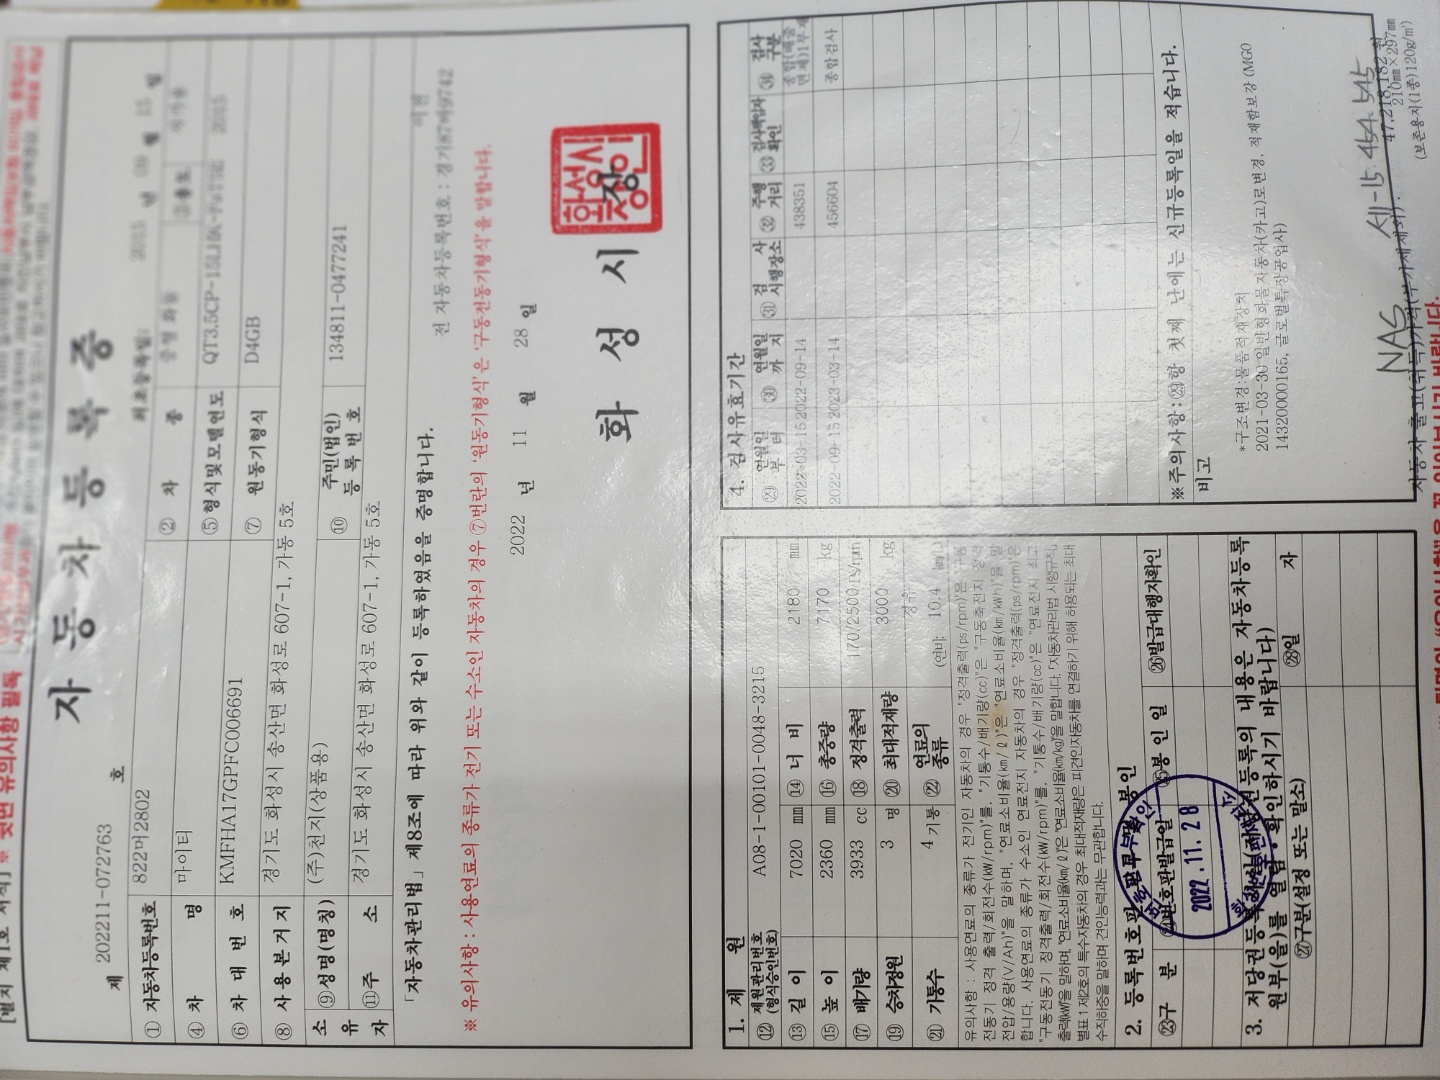 [별지 제1호 서식] ※ 뒷면 유의사항 필독
자동차등록증
제 202211-072763 호
최초등록일: 2015 년 09 월 15 일
① 자동차등록번호 822머2802 ② 차 종 중형 화물 ③ 용도 자가용
④ 차 명 마이티 ⑤ 형식및모델연도 2015
⑥ 차 대 번 호 KMFHA17GPFC006691 ⑦ 원동기형식 D4GB
⑧ 사용본거지 경기도 화성시 송산면 화성로 607-1, 가동 5호
소유자 ⑨ 성명(명칭) (주)천지(상품용) ⑩ 주민(법인)등록번호 134811-0477241
⑪ 주 소 경기도 화성시 송산면 화성로 607-1, 가동 5호
「자동차관리법」 제8조에 따라 위와 같이 등록하였음을 증명합니다.
전 자동차등록번호 :
※ 유의사항 : 사용연료의 종류가 전기 또는 수소인 자동차의 경우 ⑦번란의 '원동기형식'은 '구동전동기형식'을 말합니다.
2022 년 11 월 28 일
화 성 시 장
화성시장인
1. 제 원
⑫ 제원관리번호 (형식승인번호) A08-1-00101-0048-3215
⑬ 길 이 7020 mm ⑭ 너 비 2180 mm
⑮ 높 이 2360 mm ⑯ 총중량 7170 kg
⑰ 배기량 3933 cc ⑱ 정격출력 170/2500 Ps/rpm
⑲ 승차정원 3 명 ⑳ 최대적재량 3000 kg
㉑ 기통수 4 기통 ㉒ 연료의 종류 경유 (연비: 10.4 km/L)
유의사항 : 사용연료의 종류가 전기인 자동차의 경우 "정격출력(ps/rpm)"은 "구동
전동기 정격 출력/회전수(kW/rpm)"를, "기통수/배기량(cc)"은 "구동축전지 정격
전압/용량(V/Ah)"을 말하며, "연료소비율(km/ℓ)"은 "연료소비율(km/kWh)"을 말
합니다. 사용연료의 종류가 수소인 연료전지 자동차의 경우 "정격출력(ps/rpm)"은
"구동전동기 정격출력/회전수(kW/rpm)"를, "기통수/배기량(cc)"은 "연료전지 최고
출력(kW)"을 말하며, "연료소비율(km/ℓ)"은 "연료소비율(km/kg)"을 말합니다. 「자동차관리법 시행규칙」
별표 1 제2호의 특수자동차의 경우 최대적재량은 피견인자동차를 연결하기 위해 허용되는 최대
수직하중을 말하며 견인능력과는 무관합니다.
2. 등록번호판 봉인
㉓구 분 ㉔번호판발급일 ㉕봉 인 일 ㉖발급대행자확인
2022.11.28
3. 저당권등록 내용은 자동차등록
원부(을)를 열람·확인하시기 바랍니다)
㉗구분(설정 또는 말소) ㉘일 자
4. 검사유효기간
㉙ 연월일 부 터 ㉚ 연월일 까 지 ㉛ 검 사 시행장소 ㉜ 주행 거리 ㉝ 검사책임자 확인 ㉞ 검사 구분
2022-03-15 2022-09-14 438351
2022-09-15 2023-03-14 456604 종합검사
※주의사항:㉙항 첫째 난에는 신규등록일을 적습니다.
비고
*구조변경:물품적재장치
2021-03-30 일반형화물자동차(카고)로변경, 적재함보강 (MGO
14320000165, 글로벌특장공업사)
자동차 출고(취득)가격(부가세제외): 47,218,182 원
NAS 세-15-454
210mm×297mm
(보존용지(1종)120g/㎡)